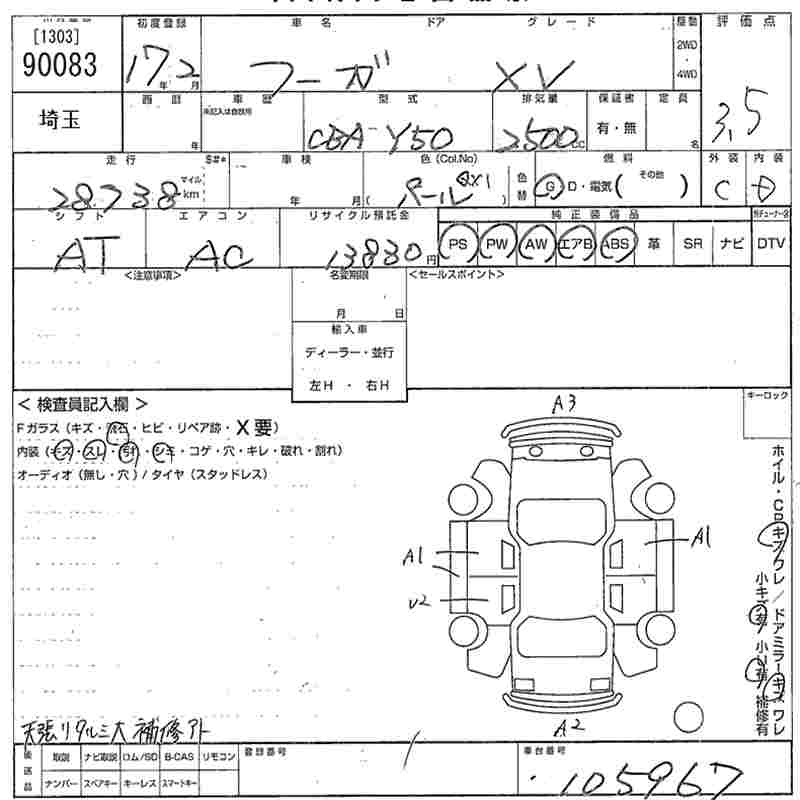 [1303]
90083
初度登録 車名 ドア グレード 駆動 評価点
17年2月 フーガ XV 2WD・4WD 3.5
埼玉
西暦 車歴 型式 排気量 保証書 定員
未記入は自家用
年 CBA-Y50 2500cc 有・無 名
走行 S#* 車検 色(Col.No) 燃料 外装 内装
28738 マイル km 年 月( パール QX1 ) 色替 G D・電気( その他 ) C D
シフト エアコン リサイクル預託金 純正装備品
AT AC 13830円 PS PW AW エアB ABS 革 SR ナビ DTV
<注意事項> 名変期限 <セールスポイント>
月 日
輸入車
ディーラー・並行
左H ・ 右H
< 検査員記入欄 >
Fガラス(キズ・飛石・ヒビ・リペア跡・X要)
内装(キズ・スレ・汚れ・シミ・コゲ・穴・キレ・破れ・割れ)
オーディオ(無し・穴)/タイヤ(スタッドレス)
キーロック
A3
A1 A1
U2
A2
ホイル・CPキズワレ/ドアミラーキズワレ
小キズ有 小U有 補修有
天張リタルミ大 補修アト
後送品 取説 ナビ取説 ロム/SD B-CAS リモコン 登録番号 車台番号
ナンバー スペアキー キーレス スマートキー 105967